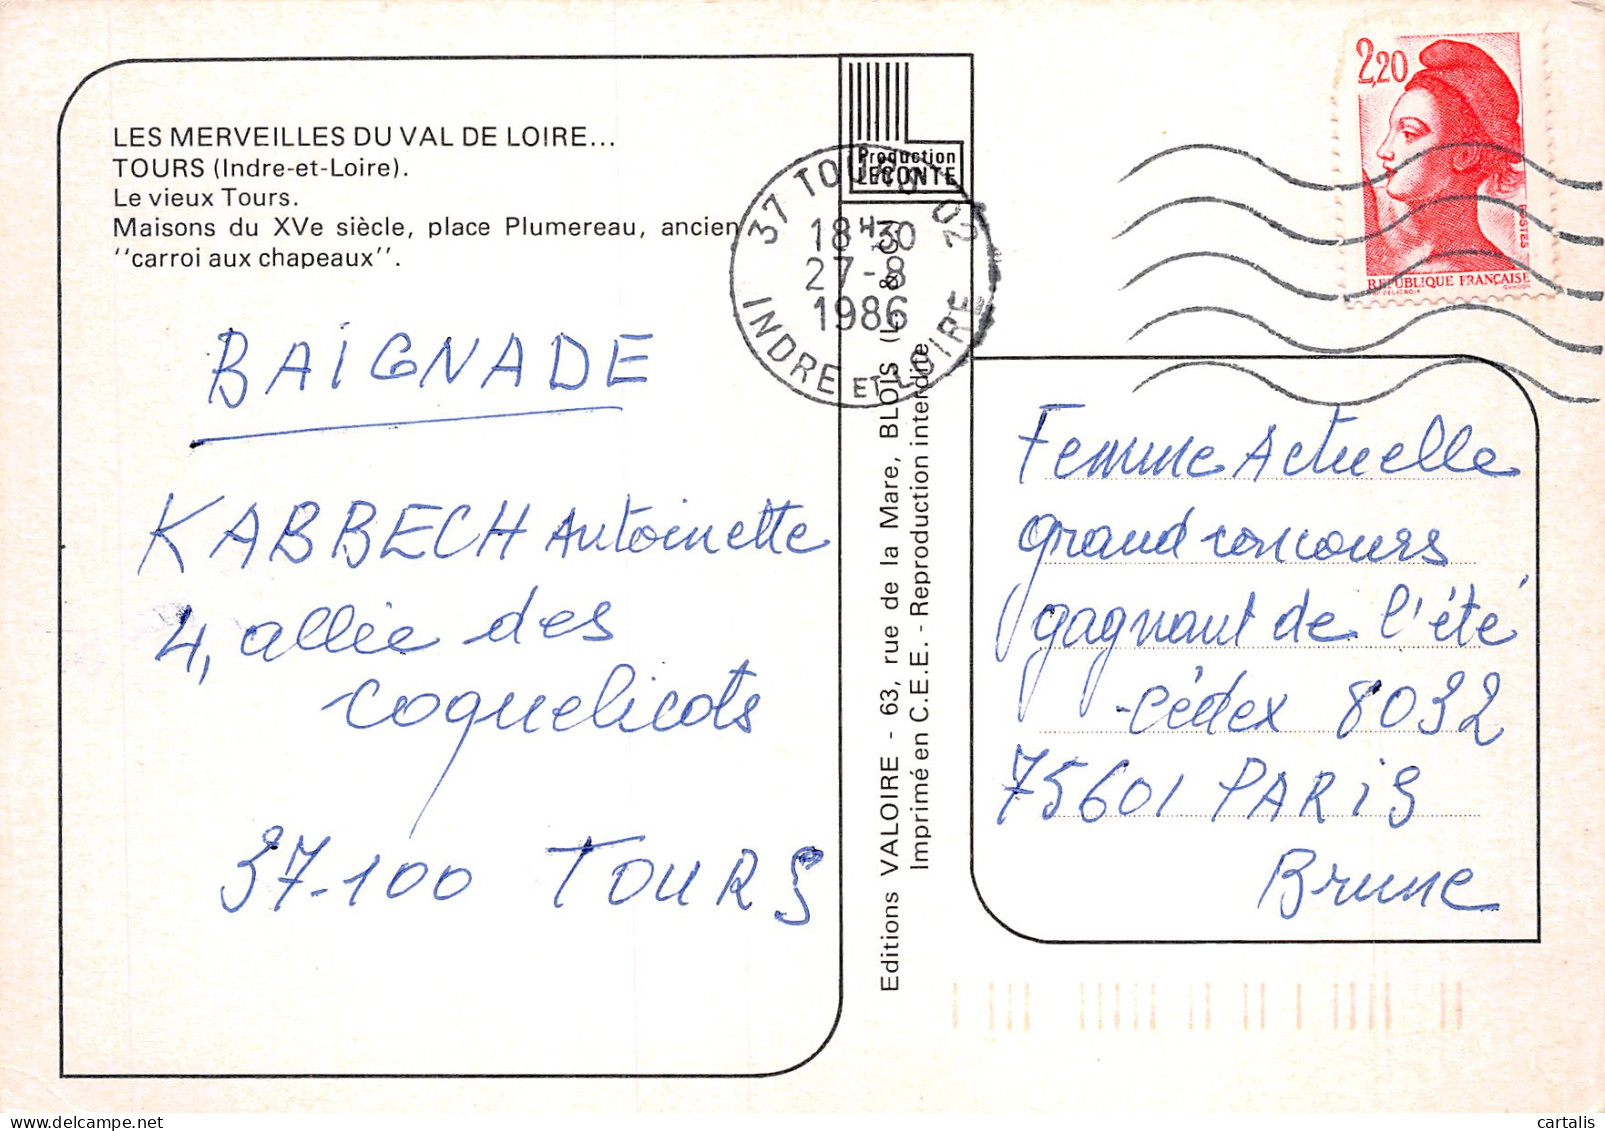 LES MERVEILLES DU VAL DE LOIRE...
TOURS (Indre-et-Loire).
Le vieux Tours.
Maisons du XVe siècle, place Plumereau, ancien
''carroi aux chapeaux''.
BAIGNADE
KABBECH Antoinette
4, allée des
coquelicots
37-100 TOURS
Production
LECONTE
37 TOURS 02
18H30
27-8
1986
INDRE ET LOIRE
Editions VALOIRE - 63, rue de la Mare, BLOIS (L. &
Imprimé en C.E.E. - Reproduction interdite
2,20
POSTES
REPUBLIQUE FRANÇAISE
DELACROIX
GANDON
Femme Actuelle
grand concours
gagnant de l'été
-cédex 8032
75601 PARiS
Brune
cartalis